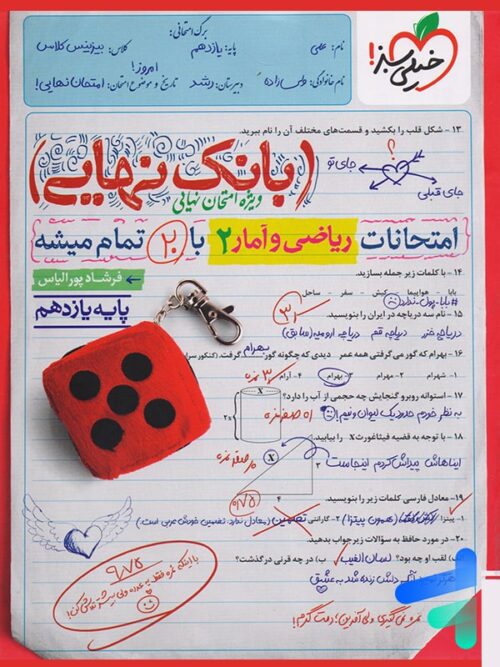 برگ امتحانی:
نام: علی
پایه: یازدهم
کلاس: بیزینس کلاس
نام خانوادگی: ولی زاده
دبیرستان: رشد
تاریخ و موضوع امتحان: امروز! امتحان نهایی!
خیلی سبز!
۱۳- شکل قلب را بکشید و قسمت‌های مختلف آن را نام ببرید.
؟
جای تو
جای قبلی
(بانک نهایی)
ویژه امتحان نهایی
امتحانات ریاضی و آمار ۲ با ۲۰ تمام میشه
فرشاد پورالیاس
پایه یازدهم
۱۴- با کلمات زیر جمله بسازید.
بابا - هواپیما - کیش - سفر - ساحل
#بابا_پول_ندارد
۱۵- نام سه دریاچه در ایران را بنویسید.
دریاچه خزر دریاچه قم دریاچه ارومیه (سابق)
۱۶- بهرام که گور می‌گرفتی همه عمر دیدی که چگونه گور بهرام گرفت. (کنکور سرا
۱- شهرام ۲- مهرام ۳- بهرام ۴- آرام
۳ نمره
۱۷- استوانه روبرو گنجایش چه حجمی از آب را دارد؟
به نظر خودم حدود یک لیوان و نیم!
X
2X
۱۸- با توجه به قضیه فیثاغورث X را بیابید.
ایناهاش پیداش کردم اینجاست
X
۳
۴
۱۹- معادل فارسی کلمات زیر را بنویسید.
۱- پیتزا (همون پیتزا) ۲- گارانتی تضمین (معادل ندارد. تضمین خودش عربی است)
۲۰- در مورد حافظ به سؤالات زیر جواب بدهید.
لقب او چه بود؟ لسان الغیب ب) در چه قرنی درگذشت؟
دلش زنده شد به عشق
نمره نمی‌گیری ولی آفرین! دمت گرم!
۹/۷۵
با اینکه نمره فقط یه عدده ولی بیشتر تلاش کن!